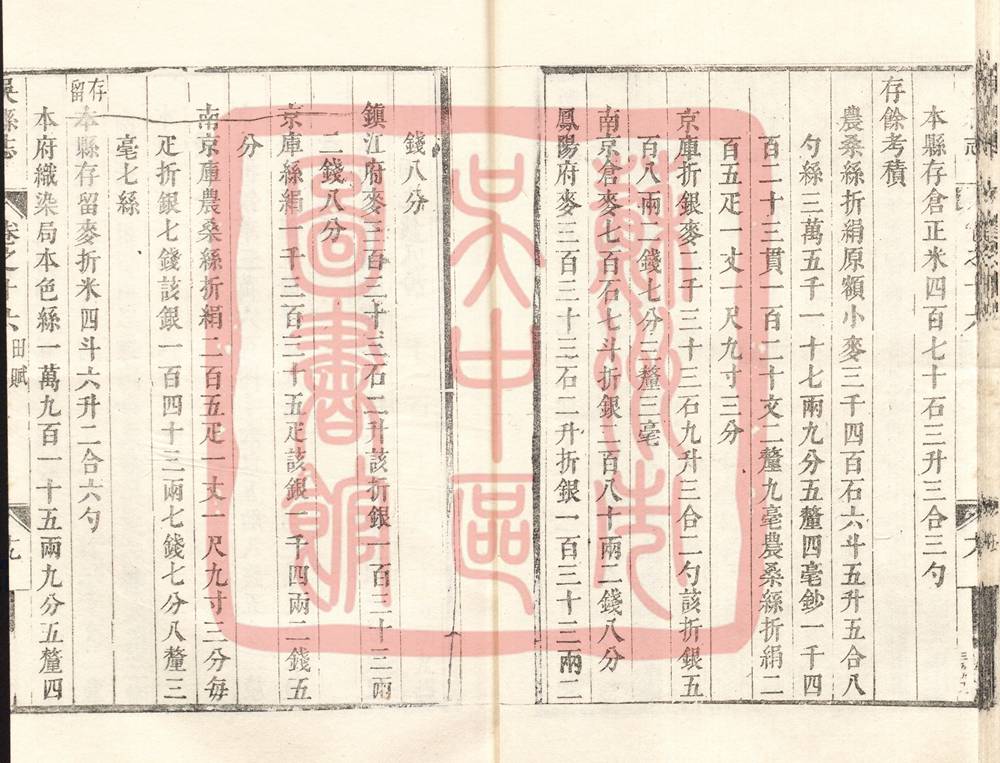 本縣存倉正米四百七十石三升三合三勺
存餘考積
農桑絲折絹原額小麥三千四百石六斗五升五合八
勺絲三萬五千一十七兩九分五釐四毫鈔一千四
百二十三貫一百二十文二釐九毫農桑絲折絹二
百五疋一丈一尺九寸三分
京庫折銀麥二千三十三石九升三合二勺該折銀五
百八兩二錢七分三釐三毫
南京倉麥七百石七斗折銀二百八十兩二錢八分
鳳陽府麥三百三十三石二升折銀一百三十三兩二
錢八分
鎮江府麥三百三十三石二升該折銀一百三十三兩
二錢八分
京庫絲絹一千三百二十五疋該銀一千四兩二錢五
分
南京庫農桑絲折絹二百五疋一丈一尺九寸三分每
疋折銀七錢該銀一百四十三兩七錢七分八釐三
毫七絲
存留
本縣存留麥折米四斗六升二合六勺
本府織染局本色絲一萬九百一十五兩九分五釐四
吳縣志
卷之十六
田賦
十九
蘇州市
吳中區
圖書館